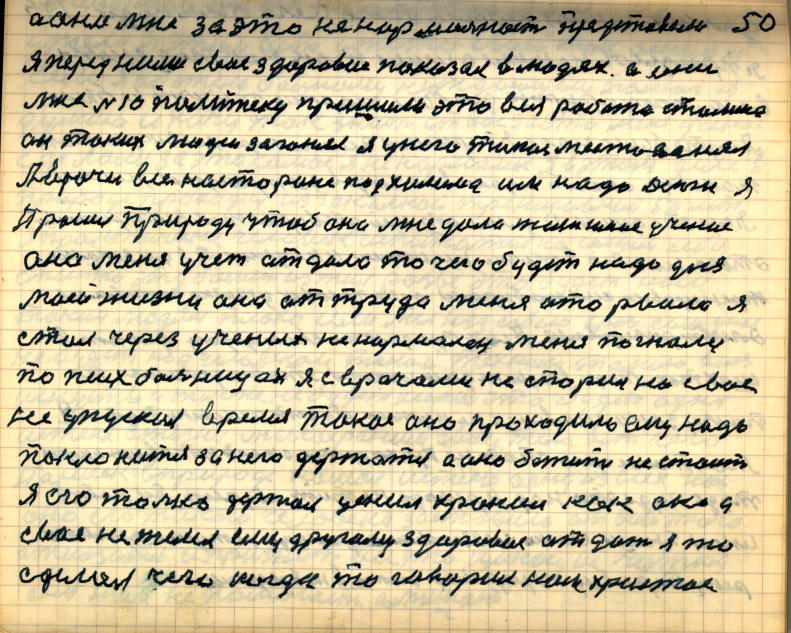 50
а они мне за это ненормальност представели
я перед ними свое здоровие показал в людях. а они
мне №10 политеку пришили это вся работа сталина
он таких люди загонял я у него такое место занял
А врочи все на стороне подхилима им надо Я
Просил Природу чтоб она мне дала жизненое учение
она меня учет отдало то чего будит надо для
моей жизни она от труда меня оторвала я
стал через ученых ненормалец меня погнали
по псих болницах я с врачами не спорил но свое
не упускал время такое оно проходило ему надо
поклонится за него держатся а оно бежить не стоит
я его толко держал ценил хронил как око а
свое не жилел ему другому здоровие отдат я то
сделал чего когда то говорил нам христос